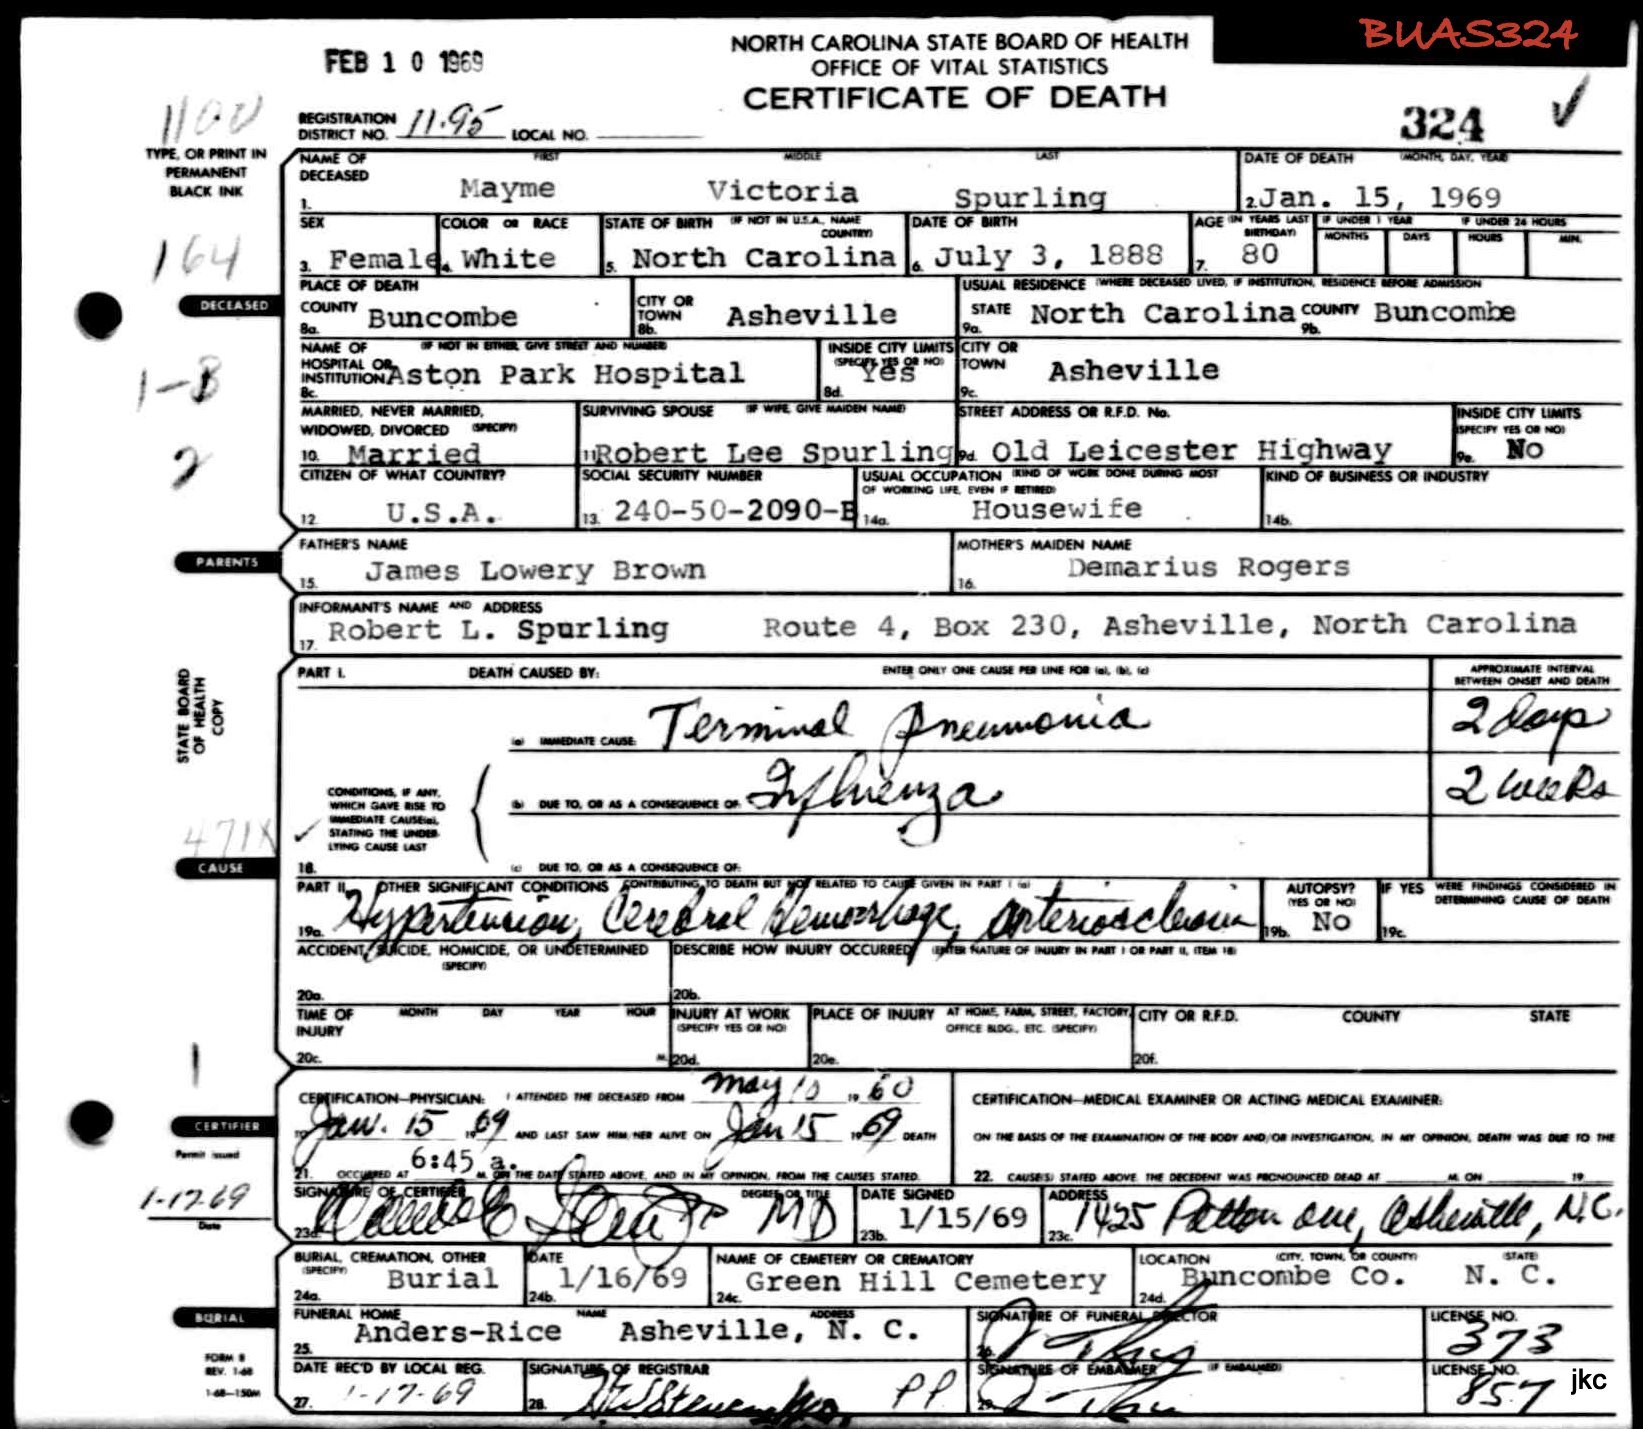 BUAS324
FEB 10 1969
NORTH CAROLINA STATE BOARD OF HEALTH
OFFICE OF VITAL STATISTICS
CERTIFICATE OF DEATH
1100
REGISTRATION DISTRICT NO. 11-95 LOCAL NO.
324
TYPE, OR PRINT IN PERMANENT BLACK INK
NAME OF DECEASED FIRST MIDDLE LAST
1. Mayme Victoria Spurling
DATE OF DEATH (MONTH, DAY, YEAR)
2. Jan. 15, 1969
164
DECEASED
SEX
3. Female
COLOR OR RACE
4. White
STATE OF BIRTH (IF NOT IN U.S.A., NAME COUNTRY)
5. North Carolina
DATE OF BIRTH
6. July 3, 1888
AGE (IN YEARS LAST BIRTHDAY)
7. 80
IF UNDER 1 YEAR MONTHS DAYS
IF UNDER 24 HOURS HOURS MIN.
PLACE OF DEATH
COUNTY
8a. Buncombe
CITY OR TOWN
8b. Asheville
USUAL RESIDENCE (WHERE DECEASED LIVED, IF INSTITUTION, RESIDENCE BEFORE ADMISSION
STATE
9a. North Carolina
COUNTY
9b. Buncombe
1-B
NAME OF HOSPITAL OR INSTITUTION (IF NOT IN EITHER, GIVE STREET AND NUMBER)
8c. Aston Park Hospital
INSIDE CITY LIMITS (SPECIFY YES OR NO)
8d. Yes
CITY OR TOWN
9c. Asheville
2
MARRIED, NEVER MARRIED, WIDOWED, DIVORCED (SPECIFY)
10. Married
SURVIVING SPOUSE (IF WIFE, GIVE MAIDEN NAME)
11. Robert Lee Spurling
STREET ADDRESS OR R.F.D. No.
9d. Old Leicester Highway
INSIDE CITY LIMITS (SPECIFY YES OR NO)
9e. No
CITIZEN OF WHAT COUNTRY?
12. U.S.A.
SOCIAL SECURITY NUMBER
13. 240-50-2090-B
USUAL OCCUPATION (KIND OF WORK DONE DURING MOST OF WORKING LIFE, EVEN IF RETIRED)
14a. Housewife
KIND OF BUSINESS OR INDUSTRY
14b.
PARENTS
FATHER'S NAME
15. James Lowery Brown
MOTHER'S MAIDEN NAME
16. Demarius Rogers
INFORMANT'S NAME AND ADDRESS
17. Robert L. Spurling Route 4, Box 230, Asheville, North Carolina
STATE BOARD OF HEALTH COPY
PART I. DEATH CAUSED BY: ENTER ONLY ONE CAUSE PER LINE FOR (a), (b), (c)
APPROXIMATE INTERVAL BETWEEN ONSET AND DEATH
(a) IMMEDIATE CAUSE: Terminal Pneumonia 2 days
CONDITIONS, IF ANY, WHICH GAVE RISE TO IMMEDIATE CAUSE(a), STATING THE UNDERLYING CAUSE LAST
(b) DUE TO, OR AS A CONSEQUENCE OF: Influenza 2 weeks
471X
CAUSE
18. (c) DUE TO, OR AS A CONSEQUENCE OF:
PART II. OTHER SIGNIFICANT CONDITIONS CONTRIBUTING TO DEATH BUT NOT RELATED TO CAUSE GIVEN IN PART I (a)
19a. Hypertension, Cerebral Hemorrhage, arteriosclerosis
AUTOPSY? (YES OR NO)
19b. No
IF YES WERE FINDINGS CONSIDERED IN DETERMINING CAUSE OF DEATH
19c.
ACCIDENT, SUICIDE, HOMICIDE, OR UNDETERMINED (SPECIFY)
20a.
DESCRIBE HOW INJURY OCCURRED (ENTER NATURE OF INJURY IN PART I OR PART II, ITEM 18)
20b.
TIME OF INJURY MONTH DAY YEAR HOUR
20c. M.
INJURY AT WORK (SPECIFY YES OR NO)
20d.
PLACE OF INJURY AT HOME, FARM, STREET, FACTORY, OFFICE BLDG., ETC. (SPECIFY)
20e.
CITY OR R.F.D. COUNTY STATE
20f.
1
CERTIFIER
CERTIFICATION—PHYSICIAN: I ATTENDED THE DECEASED FROM May 10 1960
TO Jan. 15 1969 AND LAST SAW HIM/HER ALIVE ON Jan 15 1969 DEATH
21. OCCURRED AT 6:45 a. M. ON THE DATE STATED ABOVE, AND IN MY OPINION, FROM THE CAUSES STATED.
CERTIFICATION—MEDICAL EXAMINER OR ACTING MEDICAL EXAMINER:
ON THE BASIS OF THE EXAMINATION OF THE BODY AND/OR INVESTIGATION, IN MY OPINION, DEATH WAS DUE TO THE
22. CAUSE(S) STATED ABOVE. THE DECEDENT WAS PRONOUNCED DEAD AT M. ON 19
Permit issued
1-17-69
Date
SIGNATURE OF CERTIFIER DEGREE OR TITLE
23a. MD
DATE SIGNED
23b. 1/15/69
ADDRESS
23c. 1425 Patton ave, Asheville, N.C.
BURIAL, CREMATION, OTHER (SPECIFY)
24a. Burial
DATE
24b. 1/16/69
NAME OF CEMETERY OR CREMATORY
24c. Green Hill Cemetery
LOCATION (CITY, TOWN, OR COUNTY) (STATE)
24d. Buncombe Co. N. C.
BURIAL
FUNERAL HOME NAME ADDRESS
25. Anders-Rice Asheville, N. C.
SIGNATURE OF FUNERAL DIRECTOR
26.
LICENSE NO.
373
FORM 8
REV. 1-68
1-68—150M
DATE REC'D BY LOCAL REG.
27. 1-17-69
SIGNATURE OF REGISTRAR
28. PP
SIGNATURE OF EMBALMER (IF EMBALMED)
29.
LICENSE NO.
857
jkc